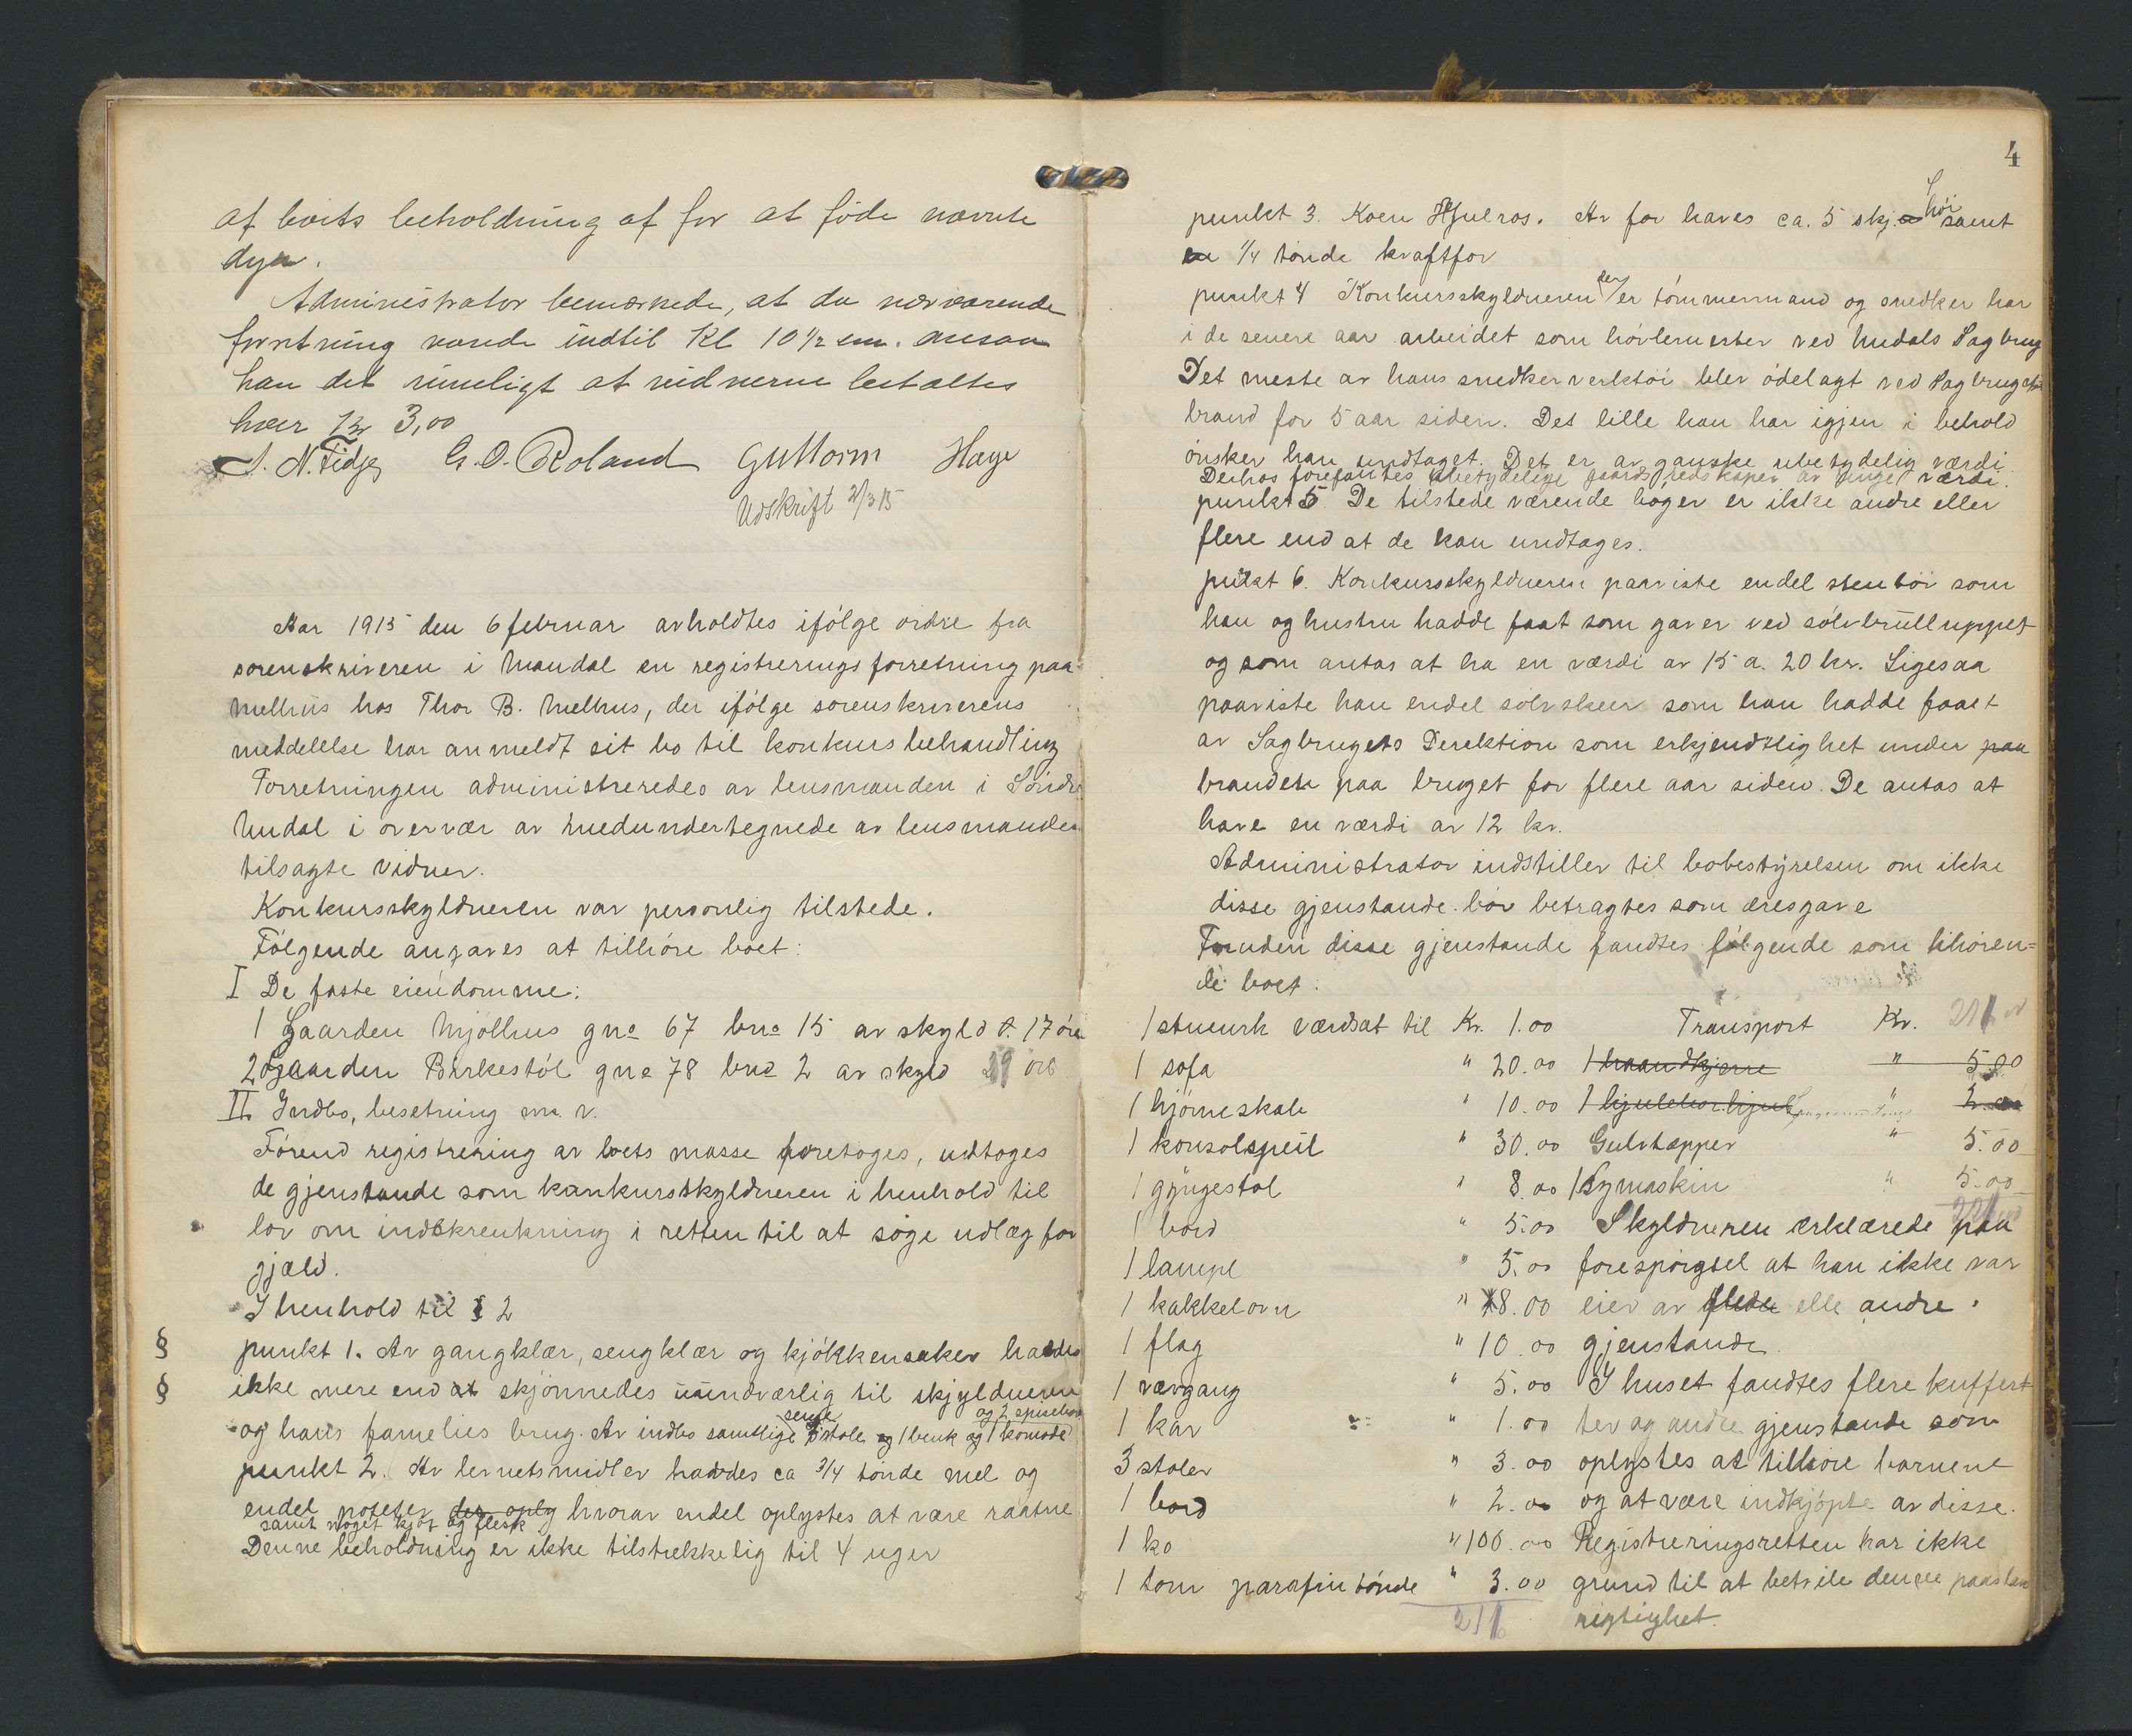 af boets beholdning af for at föde nævnte
dyr.
Administrator bemærkede, at da nærværende
forretning varede indtil Kl 10 1/2 em. ansaa
han det rimeligt at vidnerne bestaltes
hver Kr 3,00
N. Fidje G. O. Roland Guttorm Haye
Udskrift 2/3 15
Aar 1915 den 6 februar avholdtes ifölge ordre fra
sorenskriveren i Mandal en registreringsforretning paa
Melhus hos Thor B. Melhus, der ifölge sorenskriverens
meddelelse har anmeldt sit bo til konkursbehandling
Forretningen administreredes av lensmanden i Söndre
Undal i overvær av medundertegnede av lensmanden
tilsagte vidner.
Konkursskyldneren var personlig tilstede.
Fölgende angaves at tilhöre boet:
I De faste eiendomme:
1 Gaarden Mjölhus gno 67 bno 15 av skyld 17 öre
2 Gaarden Birkestöl gno 78 bno 2 av skyld öre
II Indbo, besetning m. v.
Förend registrering av boets masse foretoges, udtoges
de gjenstande som konkursskyldneren i henhold til
lov om indskrenkning i retten til at söge udlæg for
gjæld.
I henhold til § 2
§ punkt 1. Av gangklær, sengklær og kjökkensaker havdes
§ ikke mere end at skjönnedes uundværlig til skjyldneren
senge og 2 spisebor
og hans famelies brug. Av indbo samtlige stole og 1 benk og 1 komode
punkt 2. Av levnetsmidler havdes ca 3/4 tönde mel og
endel poteter der oply hvorav endel oplystes at være raatne
samt noget kjöt og flesk
Denne beholdning er ikke tilstrekkelig til 4 uger
4
punkt 3. Koen Hjulros. Av for haves ca. 5 skj. höi samt
en 1/4 tönde kraftfor
punkt 4 Konkursskyldneren der er tömmermand og snedker har
i de senere aar arbeidet som hövlemester ved Undals Sagbrug
Det meste av hans snedkerverktöi blev ödelagt ved Sagbrugets
brand for 5 aar siden. Det lille han har igjen i behold
önsker han undtaget. Det er av ganske ubetydelig værdi.
Derhos forefantes ubetydelige gaardsredskaper av ringe værdi.
punkt 5. De tilstede værende böger er ikke andre eller
flere end at de kan undtages.
punkt 6. Konkursskyldneren paaviste endel stentöi som
han og hustru hadde faat som gaver ved sölvbrülluppet
og som antas at ha en værdi av 15 a. 20 kr. Ligesaa
paaviste han endel sölvskeer som han hadde faaet
av Sagbrugets Direktion som erkjendtlighet under paa
branden paa bruget for flere aar siden. De antas at
have en værdi av 12 kr.
Administrator indstiller til bobestyrelsen om ikke
disse gjenstande bör betragtes som æresgave
Foruden disse gjenstande fandtes fölgende som tilhören=
de boet:
1 stueurh værdsat til Kr. 1.00
1 sofa " 20.00
1 hjörneskab " 10.00
1 konsolspeil " 30.00
1 gyngestol " 8.00
1 bord " 5.00
1 lampe " 5.00
1 kakkelovn " 18.00
1 flag " 10.00
1 vævgang " 5.00
1 kar " 1.00
3 stoler " 3.00
1 bord " 2.00
1 ko " 100.00
1 tom parafintönde " 3.00
Transport Kr.
1 haandkjerre " 5.00
1 " 2.00
Gulvtepper " 5.00
1 Symaskin " 5.00
Skyldneren erklærede paa
forespörgsel at han ikke var
eier av flere elle andre
gjenstande.
I huset fandtes flere kuffert
ter og andre gjenstande som
oplystes at tilhöre barnene
og at være indkjöpte av disse.
Registreringsretten har ikke
grund til at betvile denne paastan
rigtighet.